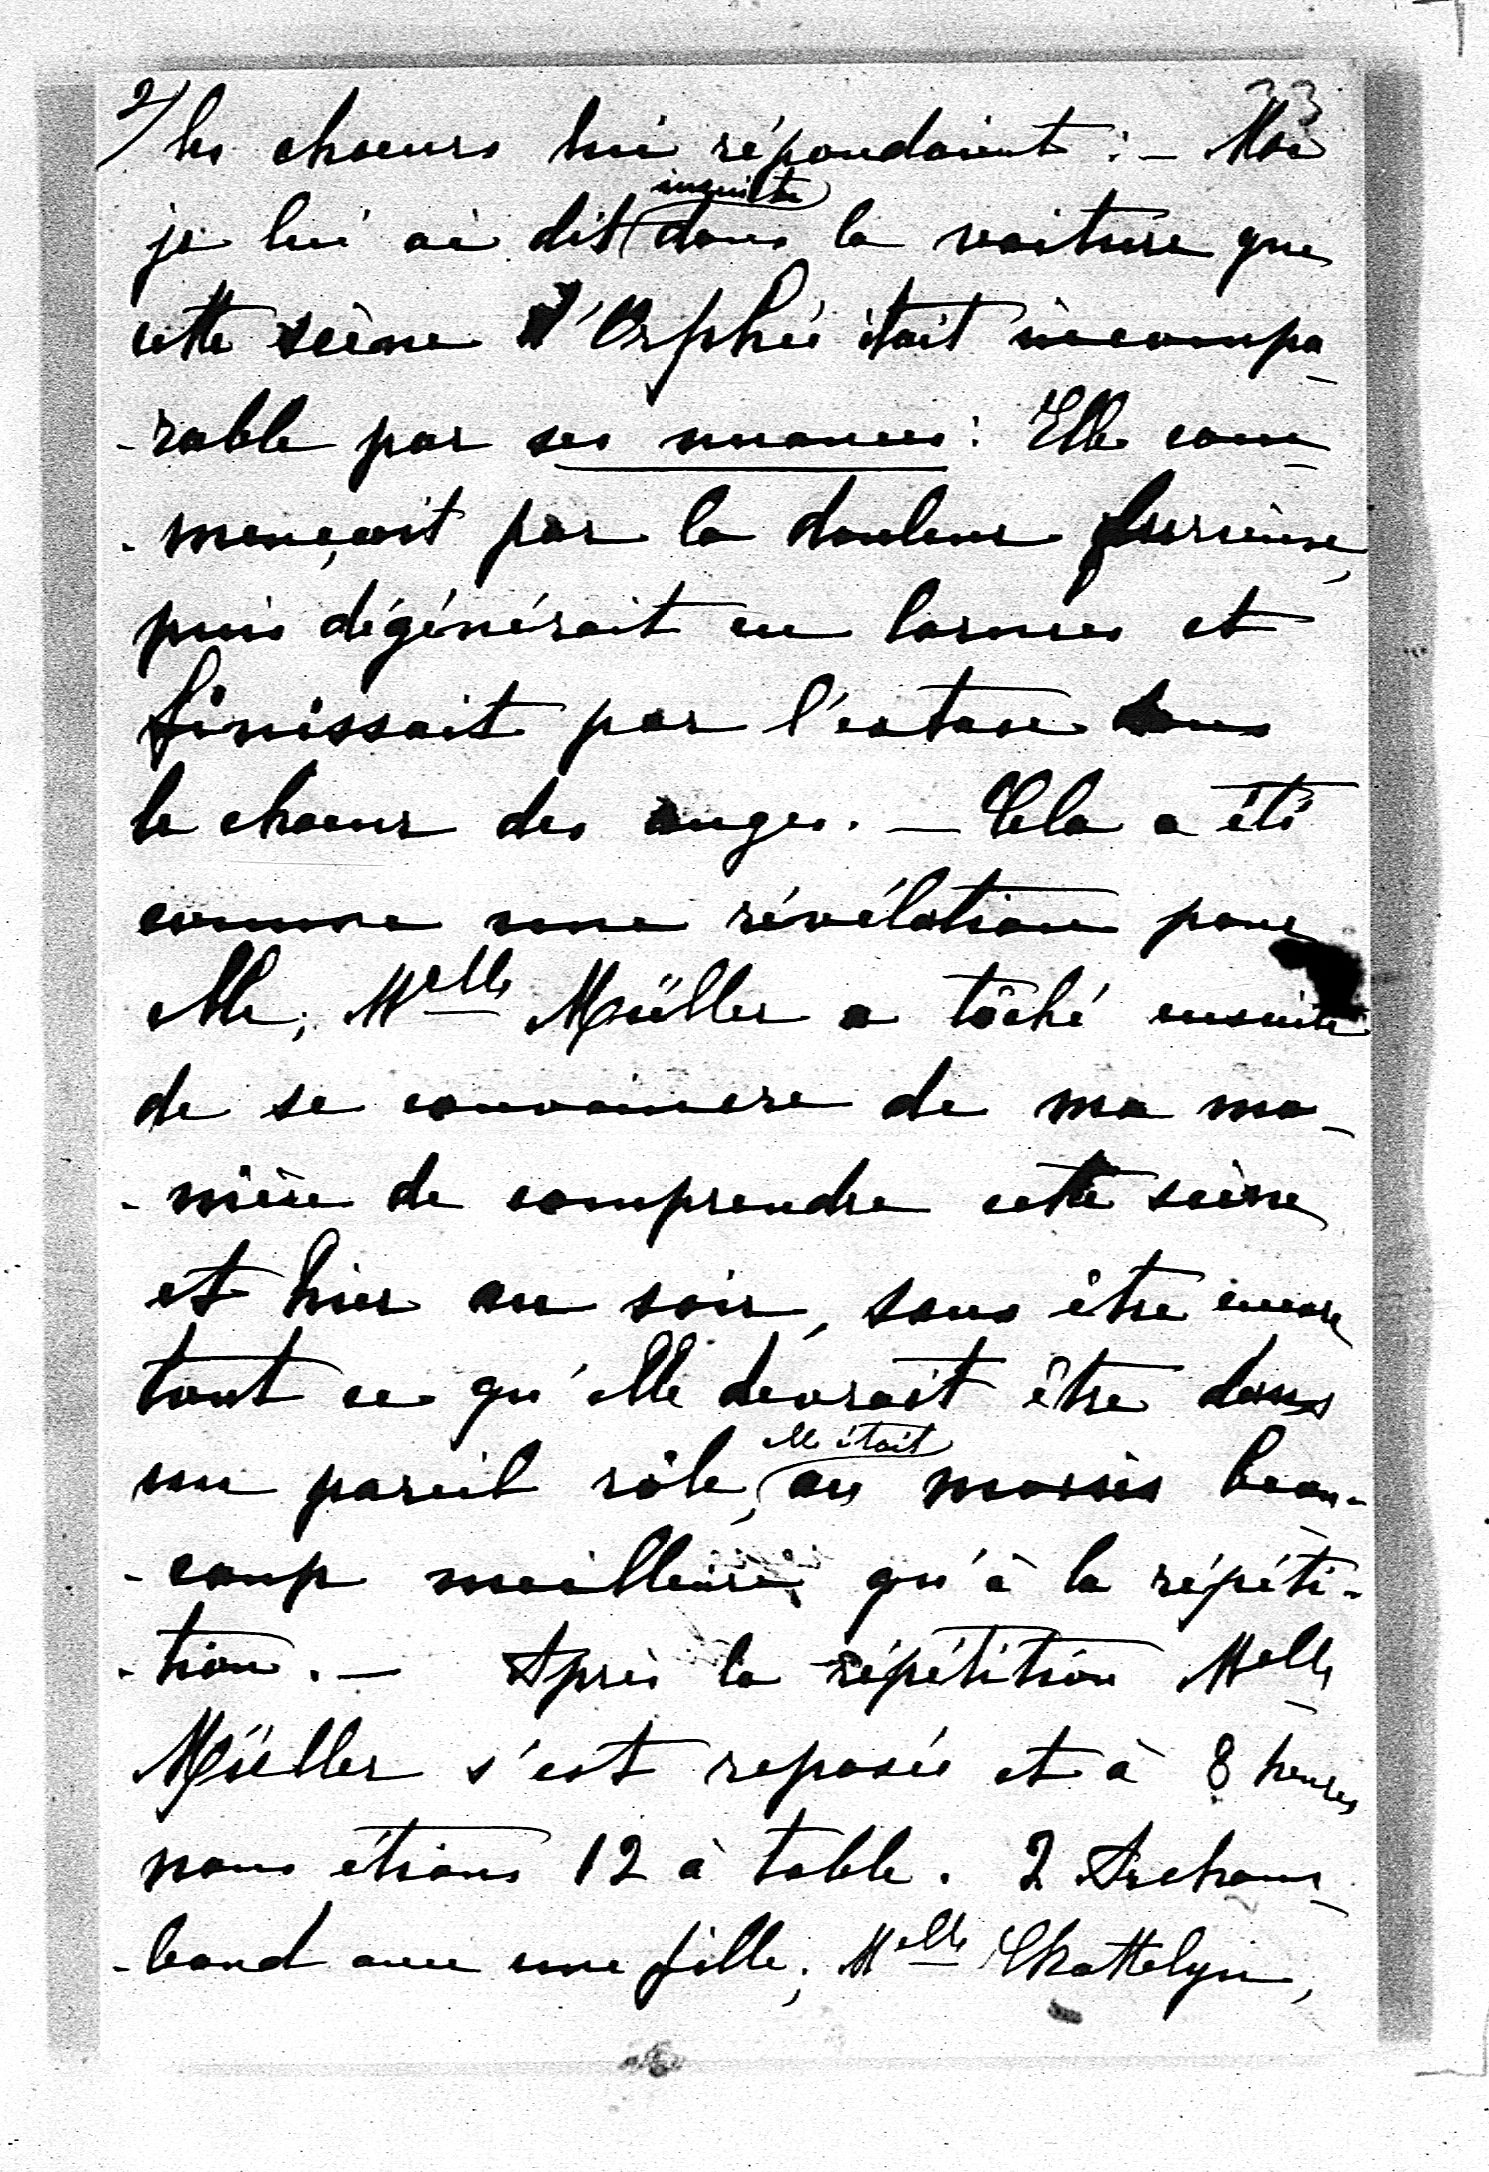 2/ 33
les choeurs lui répondaient : — Moi
ensuite
je lui ai dit dans la voiture que
cette scène d'Orphée était incompa-
-rable par ses nuances : Elle com-
-mençait par la douleur furieuse,
puis dégénérait en larmes et
finissait par l'extase dans
le choeur des anges. — Cela a été
comme une révélation pour
elle; Melle Müller a tâché ensuite
de se convaincre de ma ma-
-nière de comprendre cette scène
et hier au soir, sans être encore
tout ce qu'elle devrait être dans
elle était
un pareil rôle, au moins beau-
-coup meilleure qu'à la répéti-
-tion. — Après la répétition Melle
Müller s'est reposée et à 8 heures
nous étions 12 à table. 2 Archam-
-baud avec une fille; Melle Chattelyn,